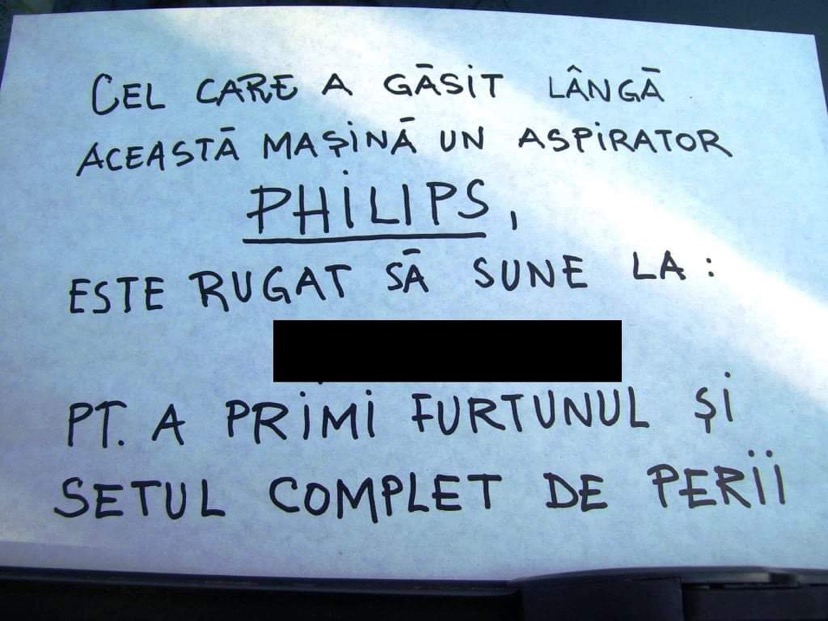 CEL CARE A GĂSIT LÂNGĂ
ACEASTĂ MAȘINĂ UN ASPIRATOR
PHILIPS,
ESTE RUGAT SĂ SUNE LA:
PT. A PRIMI FURTUNUL ȘI
SETUL COMPLET DE PERII